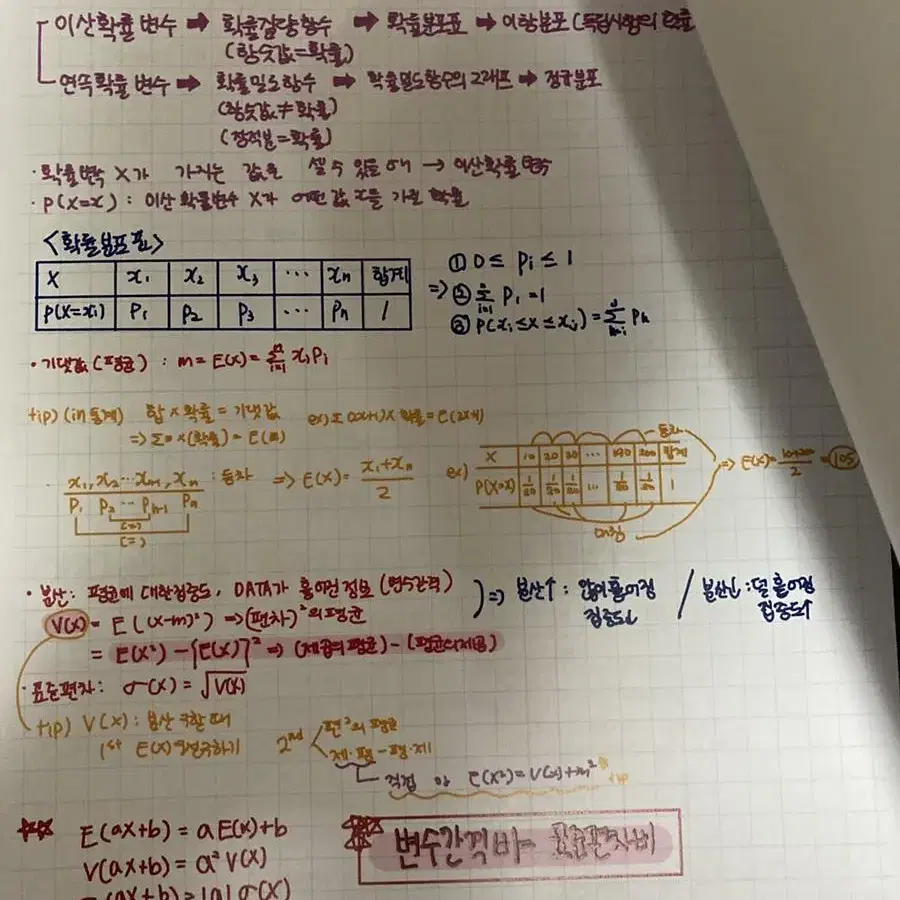 이산확률변수 ➡ 확률질량함수 ➡ 확률분포표 ➡ 이항분포 (독립시행의 확률
(함숫값=확률)
연속확률변수 ➡ 확률밀도함수 ➡ 확률밀도함수의 그래프 ➡ 정규분포
(함숫값≠확률)
(정적분=확률)
· 확률변수 X가 가지는 값을 셀 수 있을 때 → 이산확률변수
· P(X=x) : 이산확률변수 X가 어떤 값 x를 가질 확률
<확률분포표>
X x₁ x₂ x₃ ⋯ xn 합계
P(X=xi) P₁ P₂ P₃ ⋯ Pn 1
⇒ ① 0 ≤ Pi ≤ 1
② Σ Pi = 1
③ P(xi≤X≤xj) = Σ Pk
· 기댓값(평균) : m = E(X) = Σ xiPi
tip) (in 통계) 합×확률 = 기댓값
⇒ Σ■×(확률) = E(■)
x₁, x₂ ⋯ xn : 등차 ⇒ E(X) = (x₁+xn)/2
P₁ P₂ ⋯ Pn-1 Pn
(=)
(=)
등차
ex) X 10 20 30 ⋯ 190 200 합계
P(X=x) 1/20 1/20 1/20 ⋯ 1/20 1/20 1
대칭
⇒ E(X) = (10+200)/2 = 105
· 분산 : 평균에 대한 집중도, DATA가 흩어진 정도 (변수간격)
V(X) = E((X-m)²) ⇒ (편차)²의 평균
= E(X²) - {E(X)}² ⇒ (제곱의 평균) - (평균의 제곱)
⇒ 분산↑ : 많이 흩어짐 집중도↓ / 분산↓ : 덜 흩어짐 집중도↑
· 표준편차 : σ(X) = √V(X)
tip) V(X) : 분산 구할 때
1st E(X) 먼저 구하기
2nd 편²의 평균
제·평 - 평·제
직접 x E(X²) = V(X) + m² tip
E(aX+b) = aE(X)+b
V(aX+b) = a²V(X)
σ(aX+b) = |a|σ(X)
변수간격비 = 표준편차비